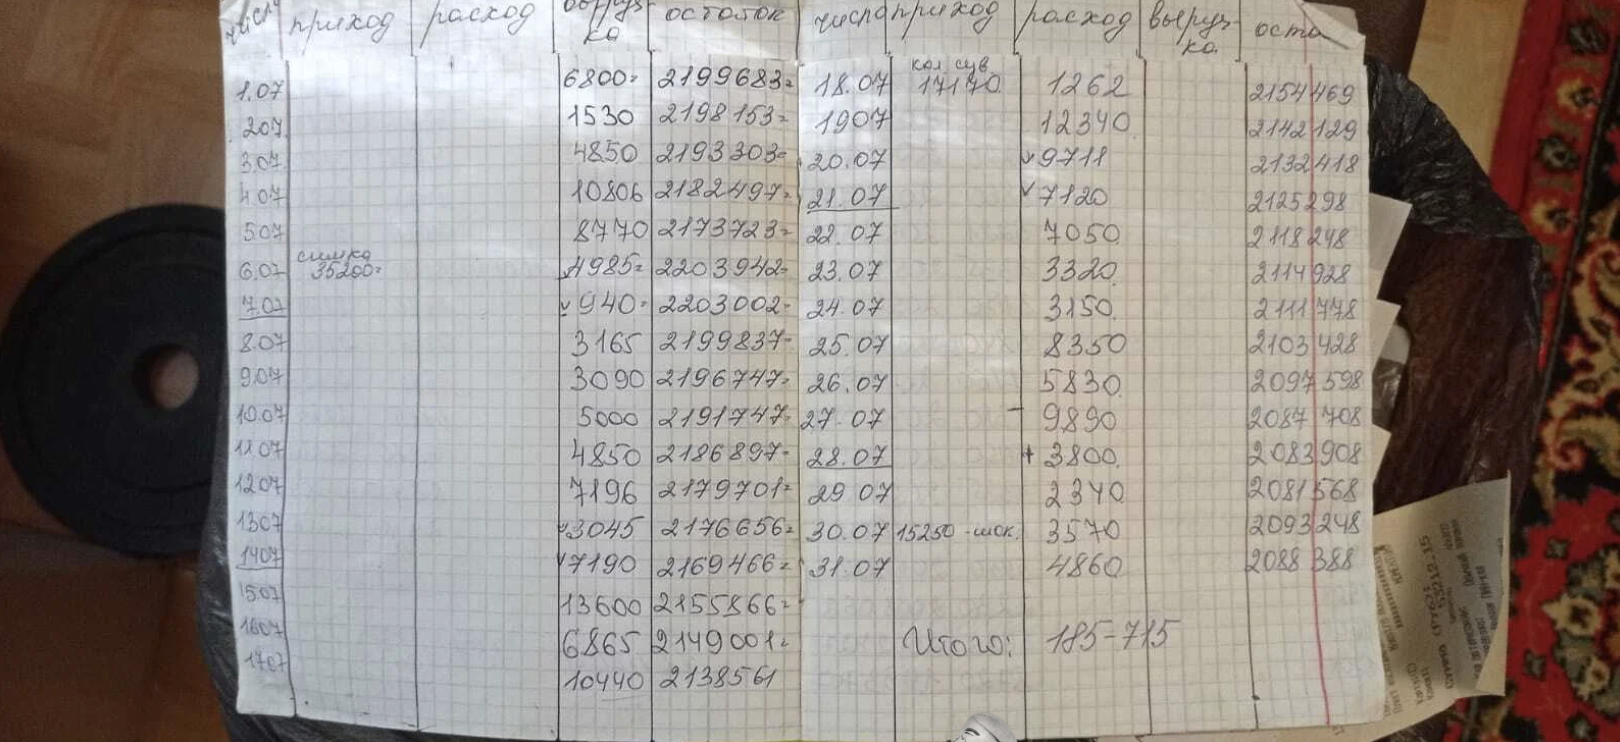 число приход расход выруз-ка остаток число приход расход выруз-ка. оста
1.07 6800= 2199683= 18.07 кол сув 17170 1262 2154469
207 1530 2198153= 1907 12340 2142129
3.07 4850 2193303= 20.07 ✓9711 2132418
4.07 10806 2182497= 21.07 ✓7120 2125298
507 8770 2173723= 22.07 7050 2118248
6.07 симка 35200= 4985= 2203942= 23.07 3320 2114928
7.07 ✓940= 2203002= 24.07 3150 2111778
8.07 3165 2199837= 25.07 8350 2103428
9.07 3090 2196747= 26.07 5830 2097598
10.07 5000 2191747= 27.07 - 9890 2087708
11.07 4850 2186897= 28.07 + 3800 2083908
1207 7196 2179701= 29 07 2340 2081568
1307 ✓3045 2176656= 30.07 15250 - шок. 3570 2093248
1407 ✓7190 2169466= 31.07 4860 2088388
1507 13600 2155866=
1607 6865 2149001= Итого: 185-715
1707 10440 2138561